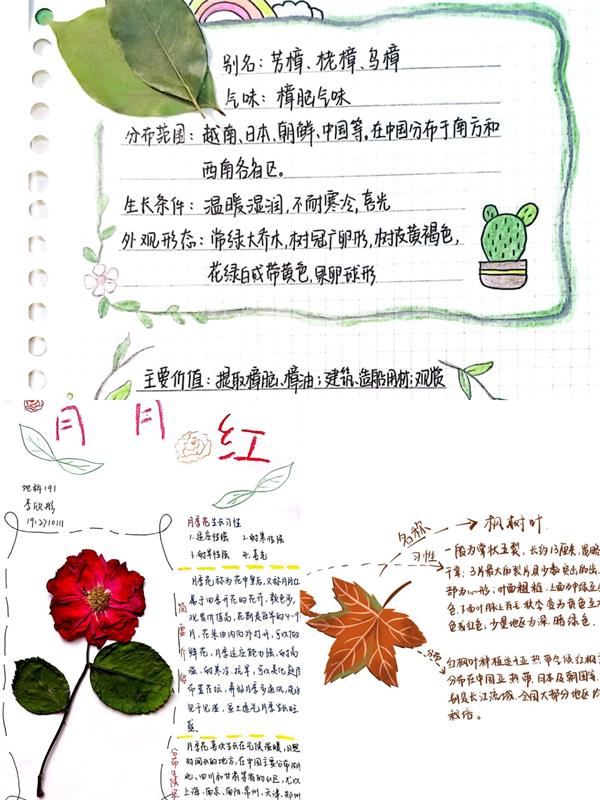 别名：芳樟、栳樟、乌樟
气味：樟脑气味
分布范围：越南、日本、朝鲜、中国等。在中国分布于南方和
西南各省区。
生长条件：温暖湿润，不耐寒冷，喜光
外观形态：常绿大乔木，树冠广卵形，树皮黄褐色，
花绿白或带黄色，果卵球形
主要价值：提取樟脑、樟油；建筑、造船用材；观赏
月月红
地科191
1912710111
月季花生长习性
1.适应性强 2.耐寒性强
3.耐旱性强 4.喜光
简要介绍
月季花称为花中皇后，又称月月红
属于四季开花的花卉，颜色多，
观赏价值高，花期長在每年的4-9
月，花朵由内向外
鲜花，月季适应能力强，耐高
温、耐寒冷、抗旱，可以美化庭院
布置花坛，
月季花喜欢生长在光照温暖，日照
时间长的地方，在中国主要分布湖
北、四川和甘肃等省的山区，尤以
上海、南京、南阳、常州、天津、郑州
名称
枫树叶
习性
一般为掌状五裂，长约13厘米，宽略
于 3片最大的裂片具少数突出的齿，
部为心形；叶面粗糙，上面为中绿至
色，下面叶脉上有毛 秋季变为黄色至
色或红色；少量地区为深、暗绿色。
分布
红枫树种植适于亚热带气候
分布在中国亚热带，日本及朝鲜等
别是长江流域，全国大部分地区均
栽培。